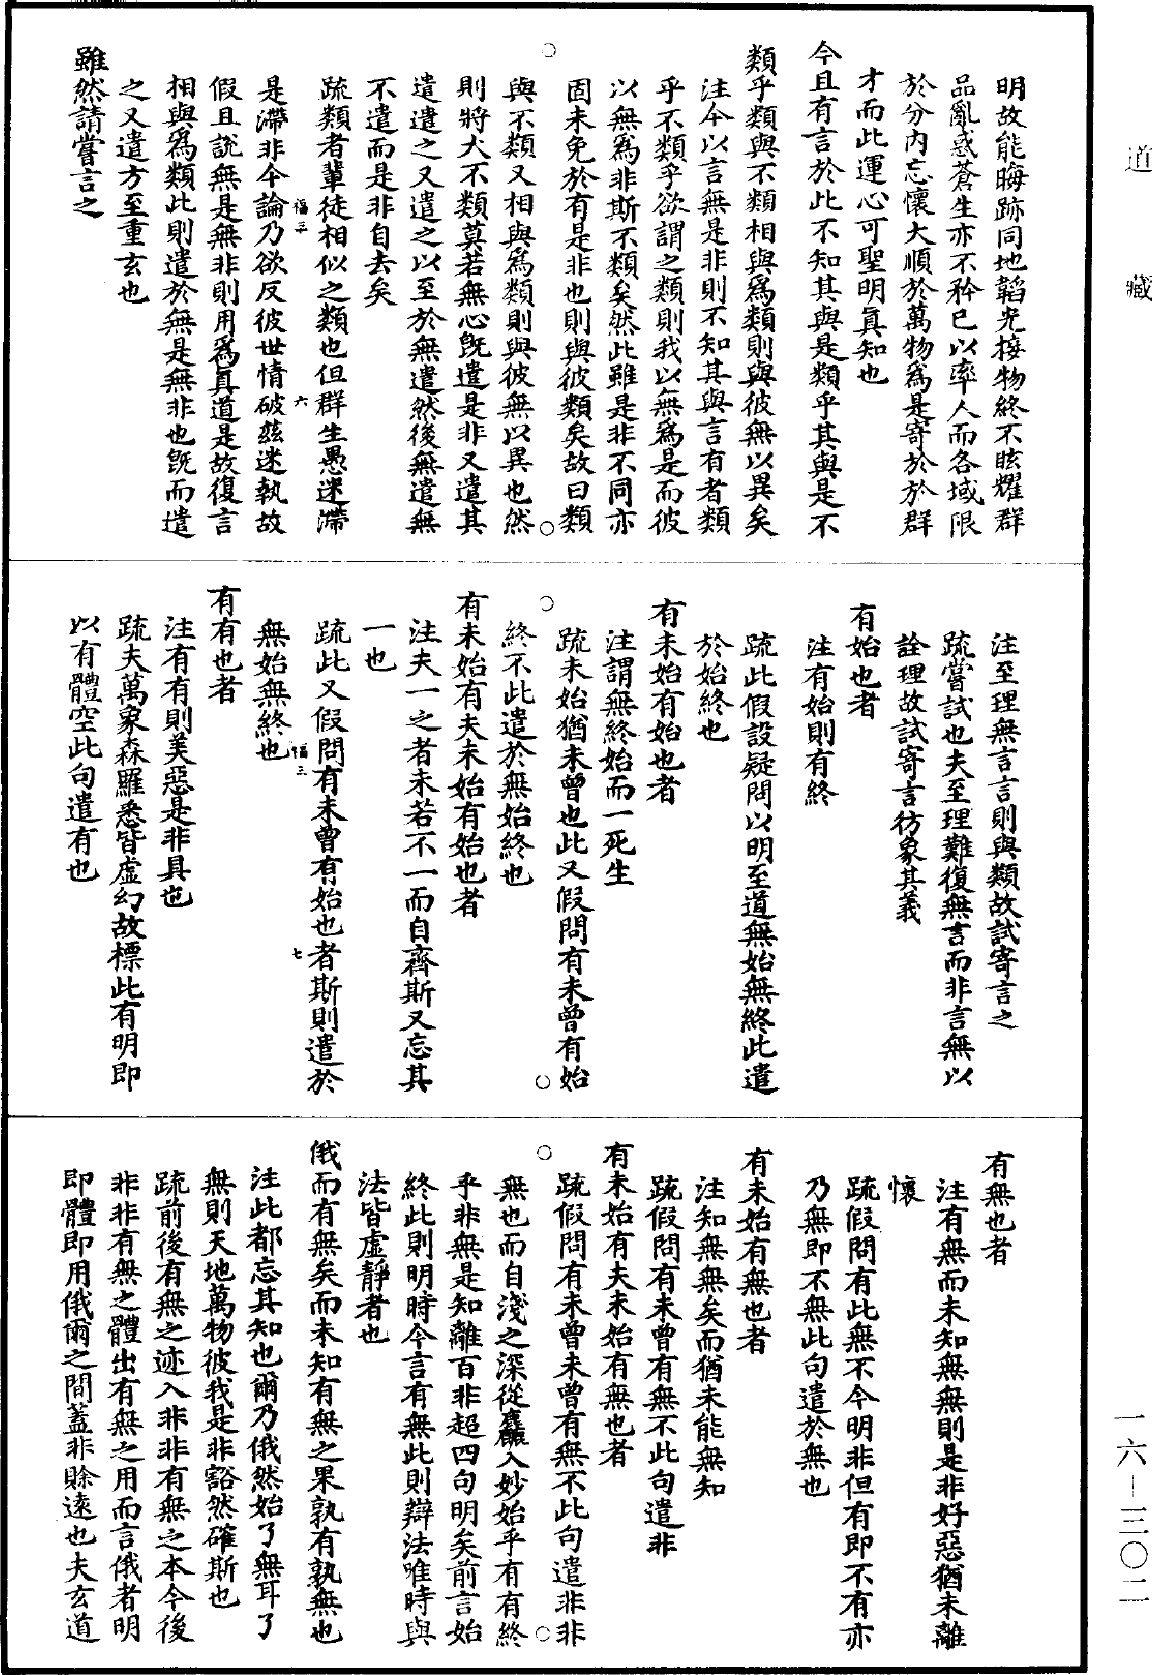 道藏
明故能晦跡同地韜光接物終不眩耀群
品亂惑蒼生亦不矜已以率人而各域限
於分內忘懷大順於萬物為是寄於於群
才而此運心可聖明真知也
今且有言於此不知其與是類乎其與是不
類乎類與不類相與爲類則與彼無以異矣
注今以言無是非則不知其與言有者類
乎不類乎欲謂之類則我以無爲是而彼
以無爲非斯不類矣然此雖是非不同亦
固未免於有是非也則與彼類矣故曰類
與不類又相與爲類則與彼無以異也然
則將大不類莫若無心既遣是非又遣其
遣遣之又遣之以至於無遣然後無遣無
不遣而是非自去矣
疏類者輩徒相似之類也但群生愚迷滯
福三 六
是滯非今論乃欲反彼世情破兹迷執故
假且說無是無非則用爲真道是故復言
相與爲類此則遣於無是無非也既而遣
之又遣方至重玄也
雖然請嘗言之
注至理無言言則與類故試寄言之
疏嘗試也夫至理難復無言而非言無以
詮理故試寄言彷象其義
有始也者
注有始則有終
疏此假設疑問以明至道無始無終此遣
於始終也
有未始有始也者
注謂無終始而一死生
疏未始猶未曾也此又假問有未曾有始
終不此遣於無始終也
有未始有夫未始有始也者
注夫一之者未若不一而自齊斯又忘其
一也
疏此又假問有未曾有始也者斯則遣於
福三 七
無始無終也
有有也者
注有有則美惡是非具也
疏夫萬象森羅悉皆虛幻故標此有明即
以有體空此句遣有也
有無也者
注有無而未知無無則是非好惡猶未離
懷
疏假問有此無不今明非但有即不有亦
乃無即不無此句遣於無也
有未始有無也者
注知無無矣而猶未能無知
疏假問有未曾有無不此句遣非
有未始有夫未始有無也者
疏假問有未曾未曾有無不此句遣非非
無也而自淺之深從麤入妙始乎有有終
乎非無是知離百非超四句明矣前言始
終此則明時今言有無此則辯法唯時與
法皆虛靜者也
俄而有無矣而未知有無之果孰有孰無也
注此都忘其知也爾乃俄然始了無耳了
無則天地萬物彼我是非豁然確斯也
疏前後有無之迹入非非有無之本今後
非非有無之體出有無之用而言俄者明
即體即用俄爾之間蓋非賒遠也夫玄道
一六－三〇二